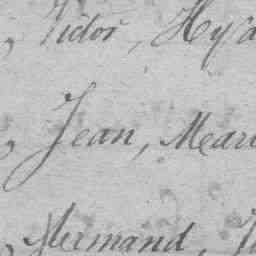 , Victor, Hy
, Jean, Mar
, Normand, J